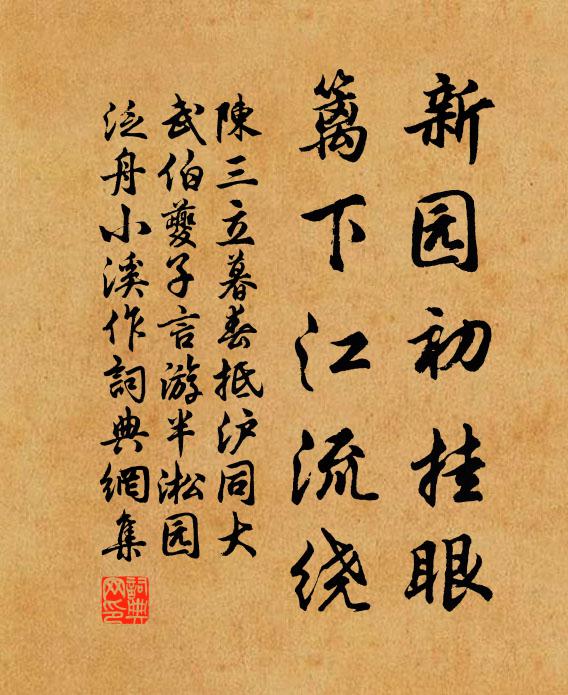 新园初挂眼
篱下江流绕
陳三立暮春抵沪同大
武伯夔子言游半淞园
泛舟小溪作詞典網集
詞典
网印